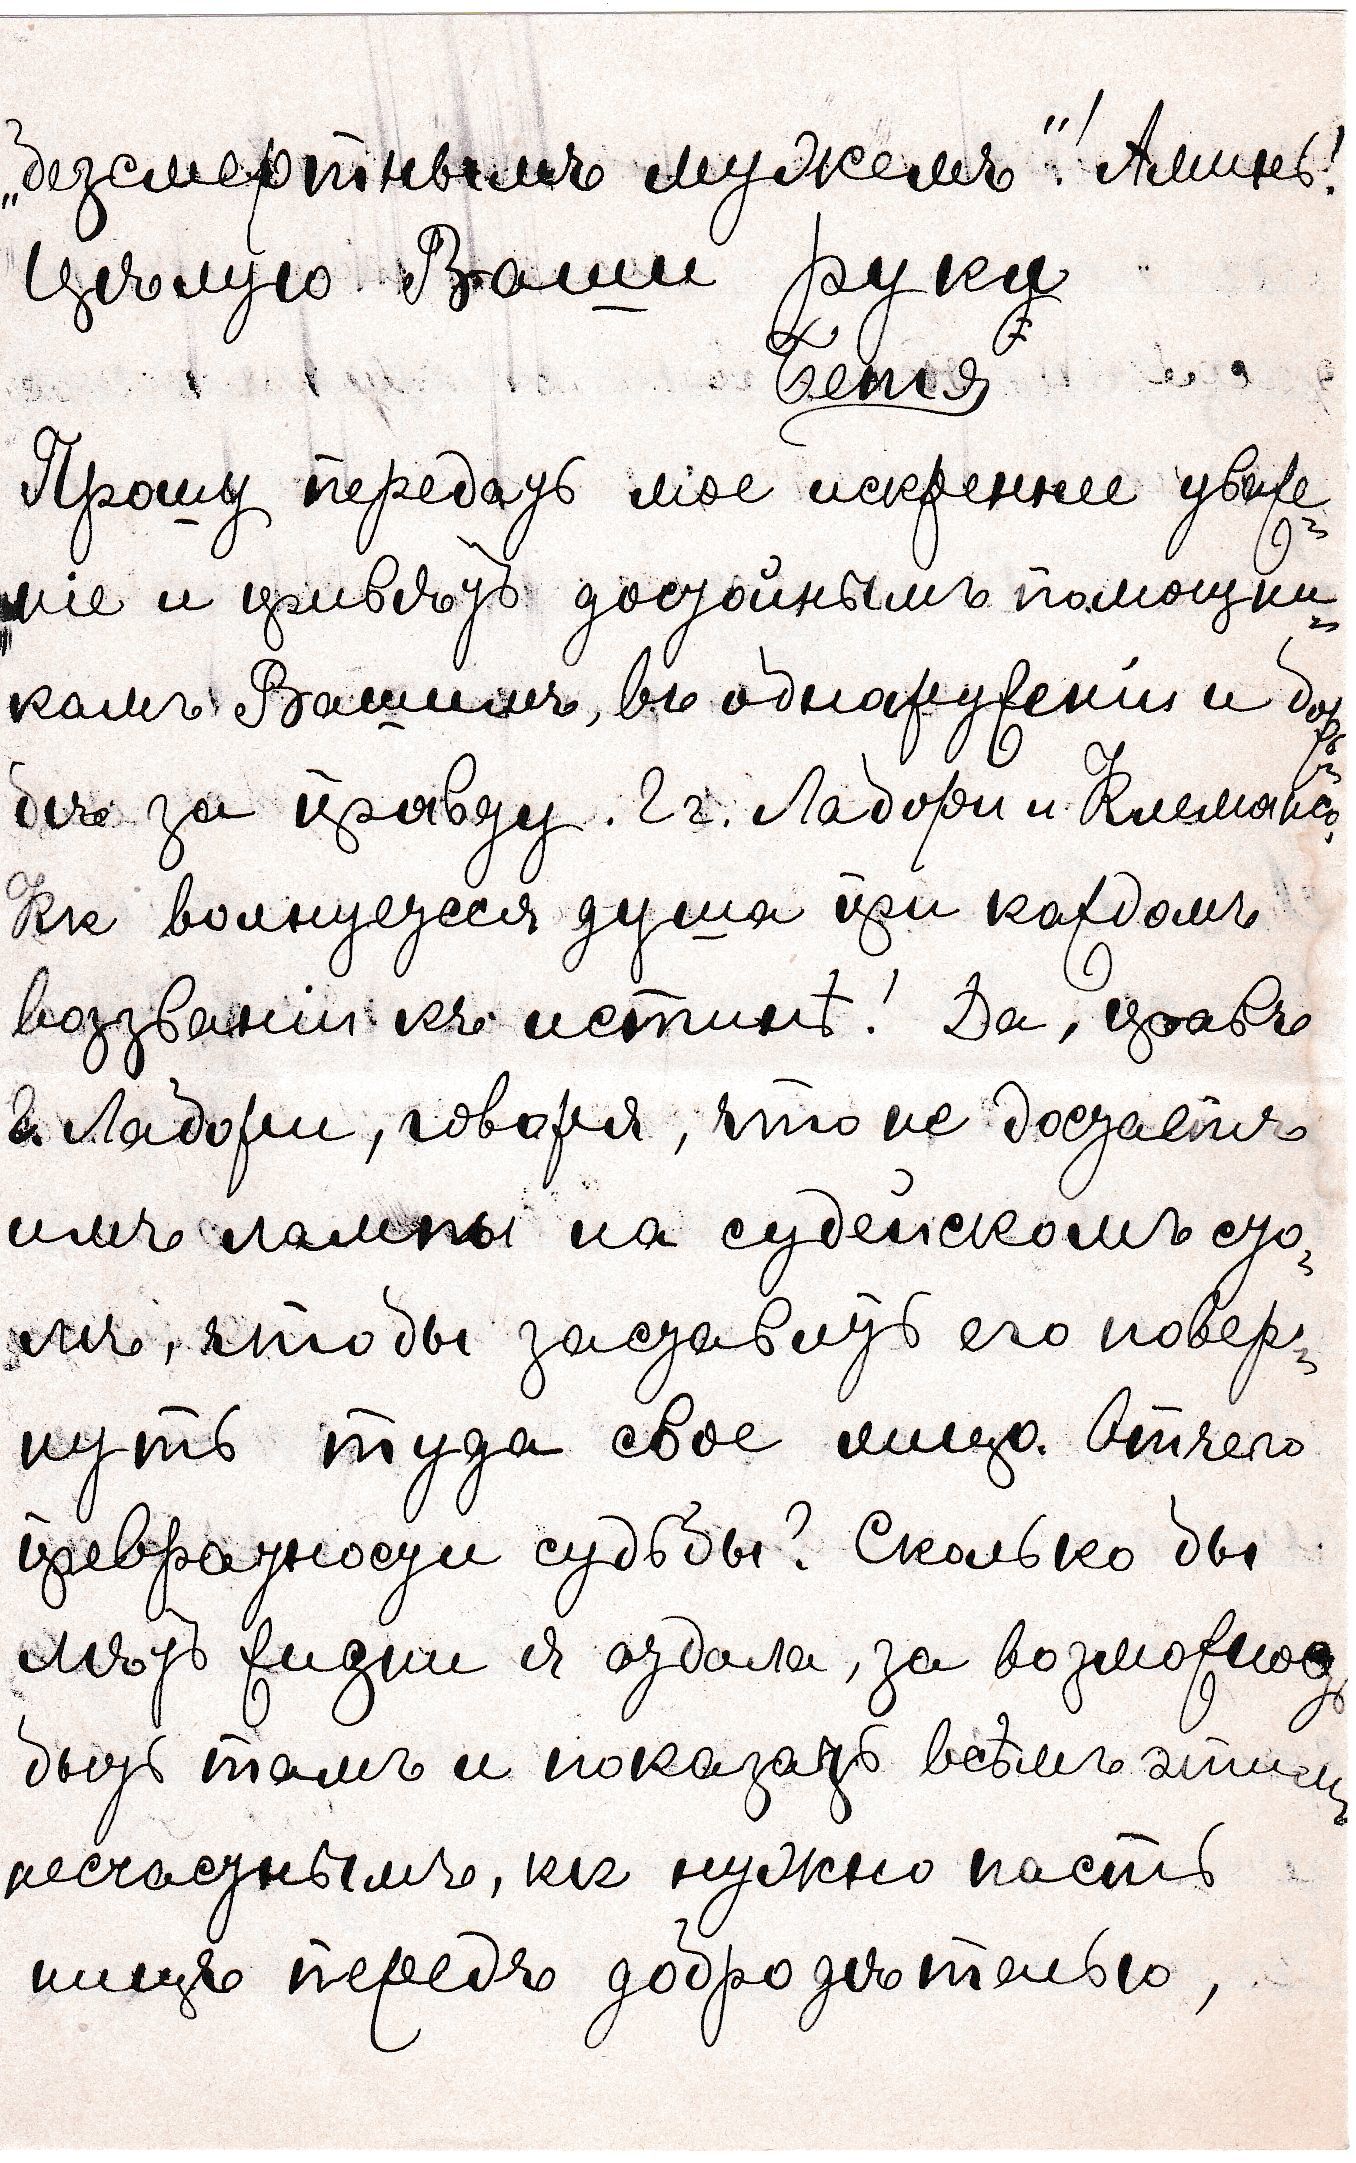 „безсмертнымъ мужемъ"! Аминь!
Цѣлую Ваши руки
Бетя
Прошу передать мое искреннее уваже=
ніе и привѣтъ достойнымъ помощни=
камъ Вашимъ, въ обнаруженіи и борь=
бѣ за правду. Гг. Лабори и Клемансо,
Кк волнуется душа при каждомъ
воззваніи къ истинѣ! Да, правъ
г. Лабори, говоря, что не достаетъ
имъ лампы на судейскомъ сто=
лѣ, чтобы заставить его повер=
нуть туда свое лицо. Отчего
превратности судьбы? Сколько бы
лѣтъ жизни я отдала, за возможность
быть тамъ и показать всѣмъ этимъ
несчастнымъ, кк нужно пасть
ницъ передъ добродѣтелью,